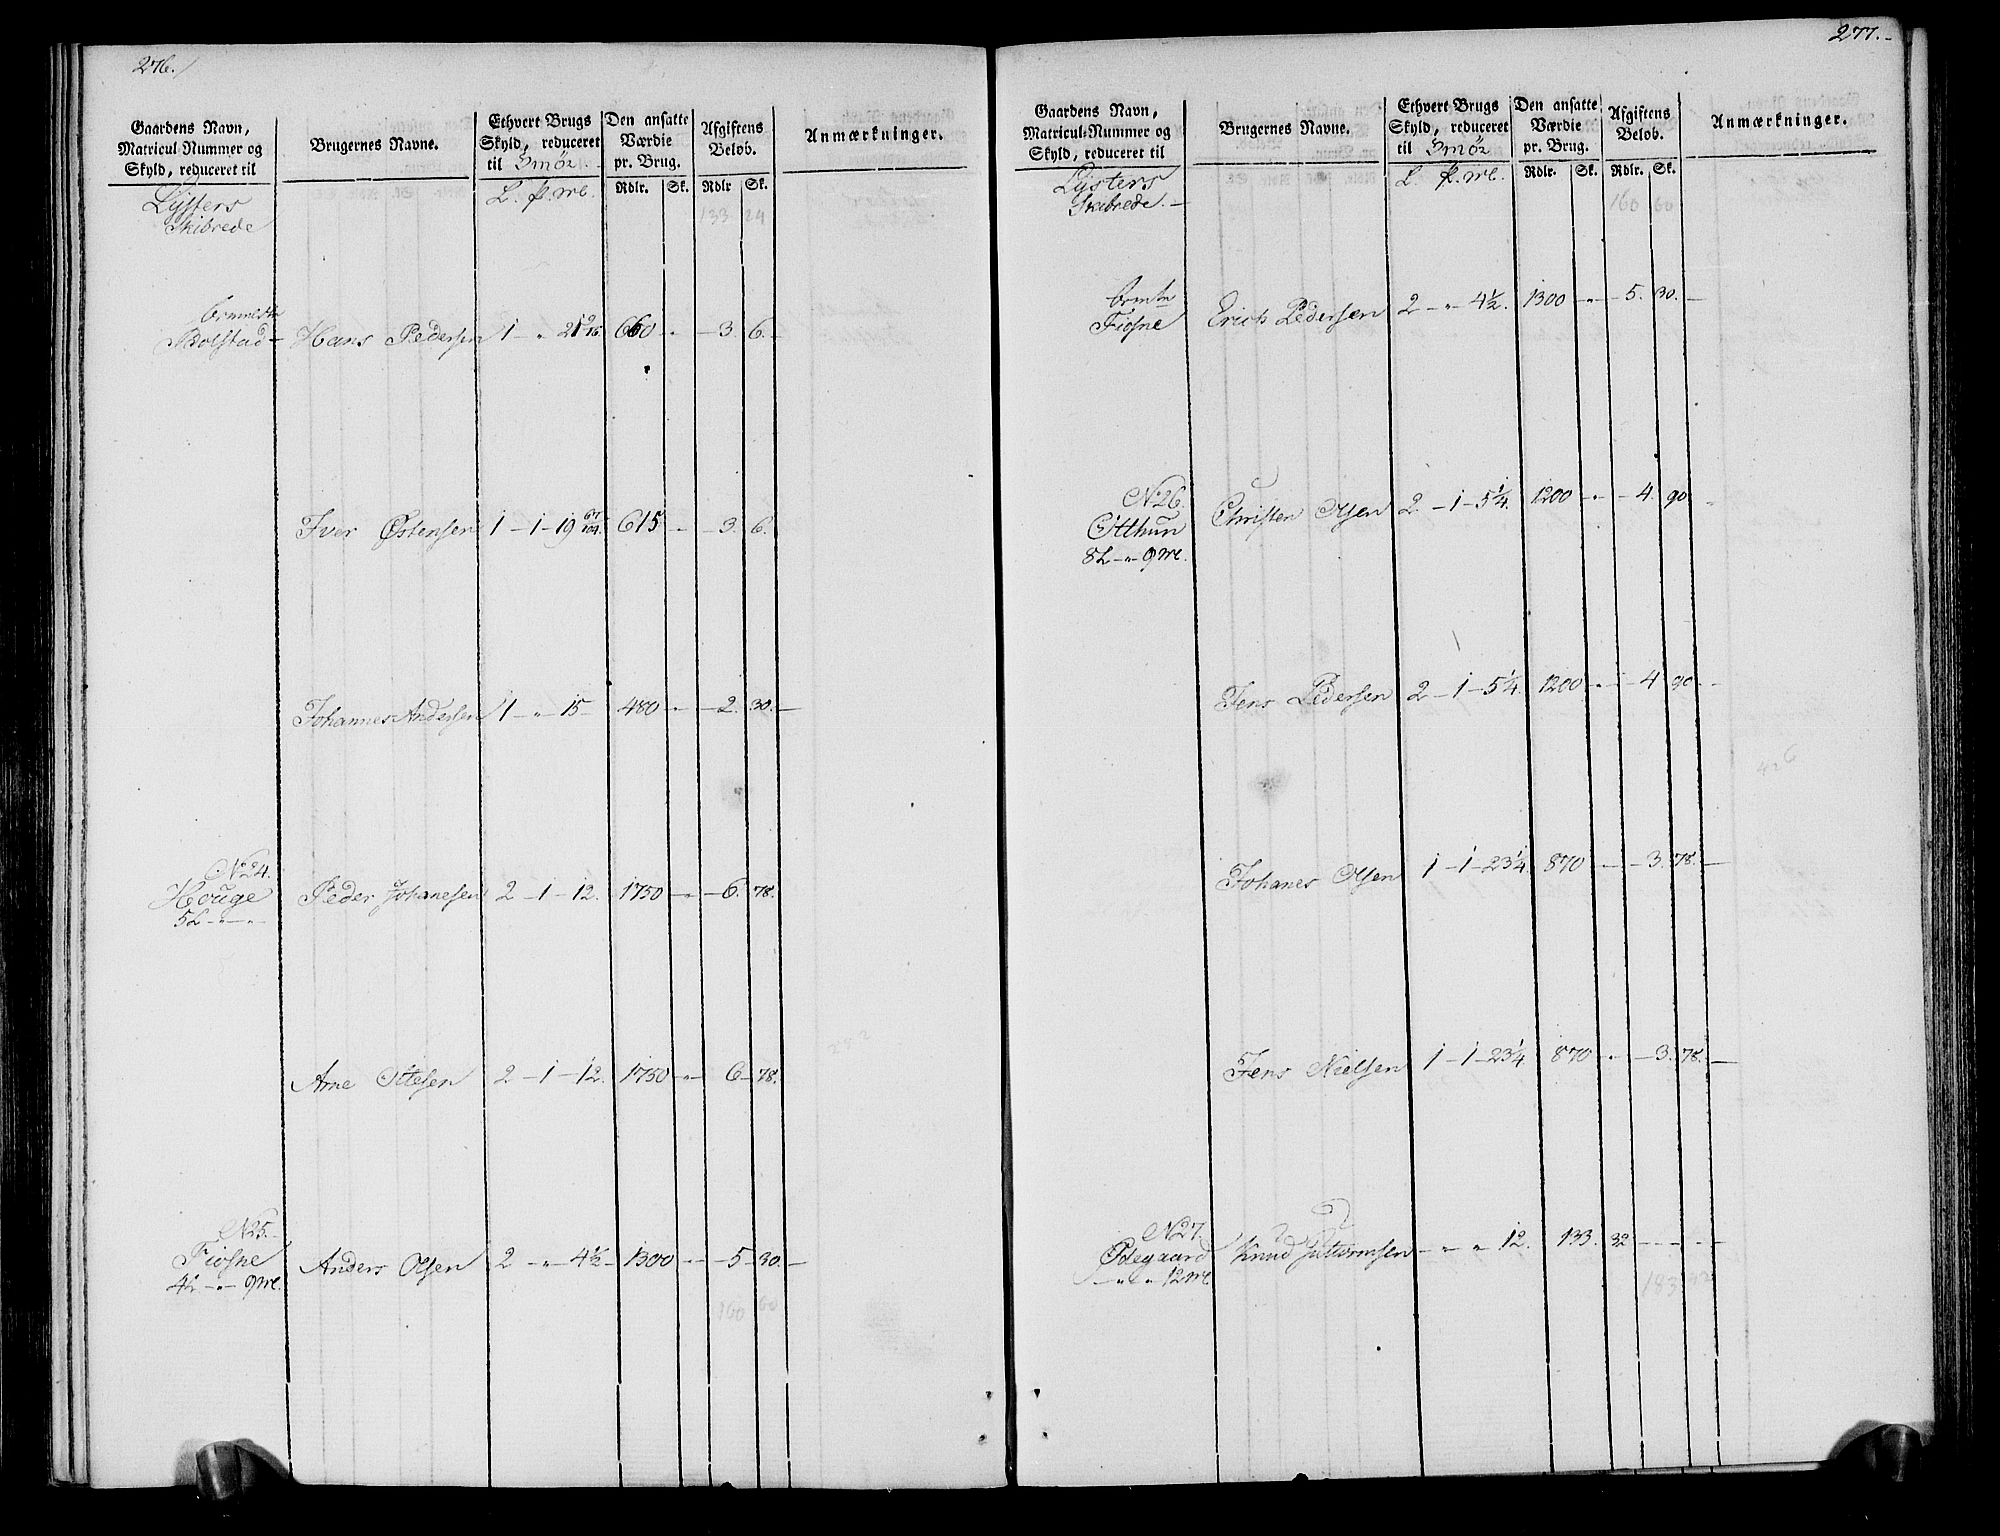 276.
Gaardens Navn, Matricul-Nummer og Skyld, reduceret til
Brugernes Navne.
Ethvert Brugs Skyld, reduceret til Smör
Den ansatte Værdie pr. Brug.
Afgiftens Beløb.
Anmærkninger.
L. p. mk.
Rdlr. Sk. Rdlr Sk.
Lysters
Skibrede
133 24
Bolstad Hans Pedersen 1 - " 660 " - 3. 6. -
Iver Østensen 1 - 1 - 19 67/104 615 - 3. 6.
Johannes Andersen 1 - " 15 - 480 " - 2. 30. -
No 24.
Houge Peder Johanesen 2 - 1 - 12. 1750 - " - 6. 78.
5L - " - " -
Arne Ottesen 2 - 1 - 12. 1750 - " - 6 - 78.
No 25.
Fiøsne Anders Olsen 2 - " - 4½ - 1300 - - 5 - 30. -
4L - " - 9 mk.
160 60
277.
Gaardens Navn, Matricul-Nummer og Skyld, reduceret til
Brugernes Navne.
Ethvert Brugs Skyld, reduceret til Smör
Den ansatte Værdie pr. Brug.
Afgiftens Beløb.
Anmærkninger.
L. p. mk.
Rdlr. Sk. Rdlr. Sk.
Lysters
Skibrede. -
160 60
Fiøsne Erich Pedersen 2 - " 4½. 1300 - " - 5. 30. -
No 26.
Otthun Christen Olsen 2 - 1 - 5¼. 1200 - " - 4. 90
8L - " - 9 mk.
Jens Pedersen 2 - 1 - 5¼. 1200 - " - 4 90 -
Johanes Olsen 1 - 1 - 23¼. 870 - - 3. 78. -
Jens Nielsen 1 - 1 - 23¼ 870 " - 3. 78. -
No 27.
Ødegaard Knud - " " 12. 133. 32 - - - -
- " " 12 mk
183